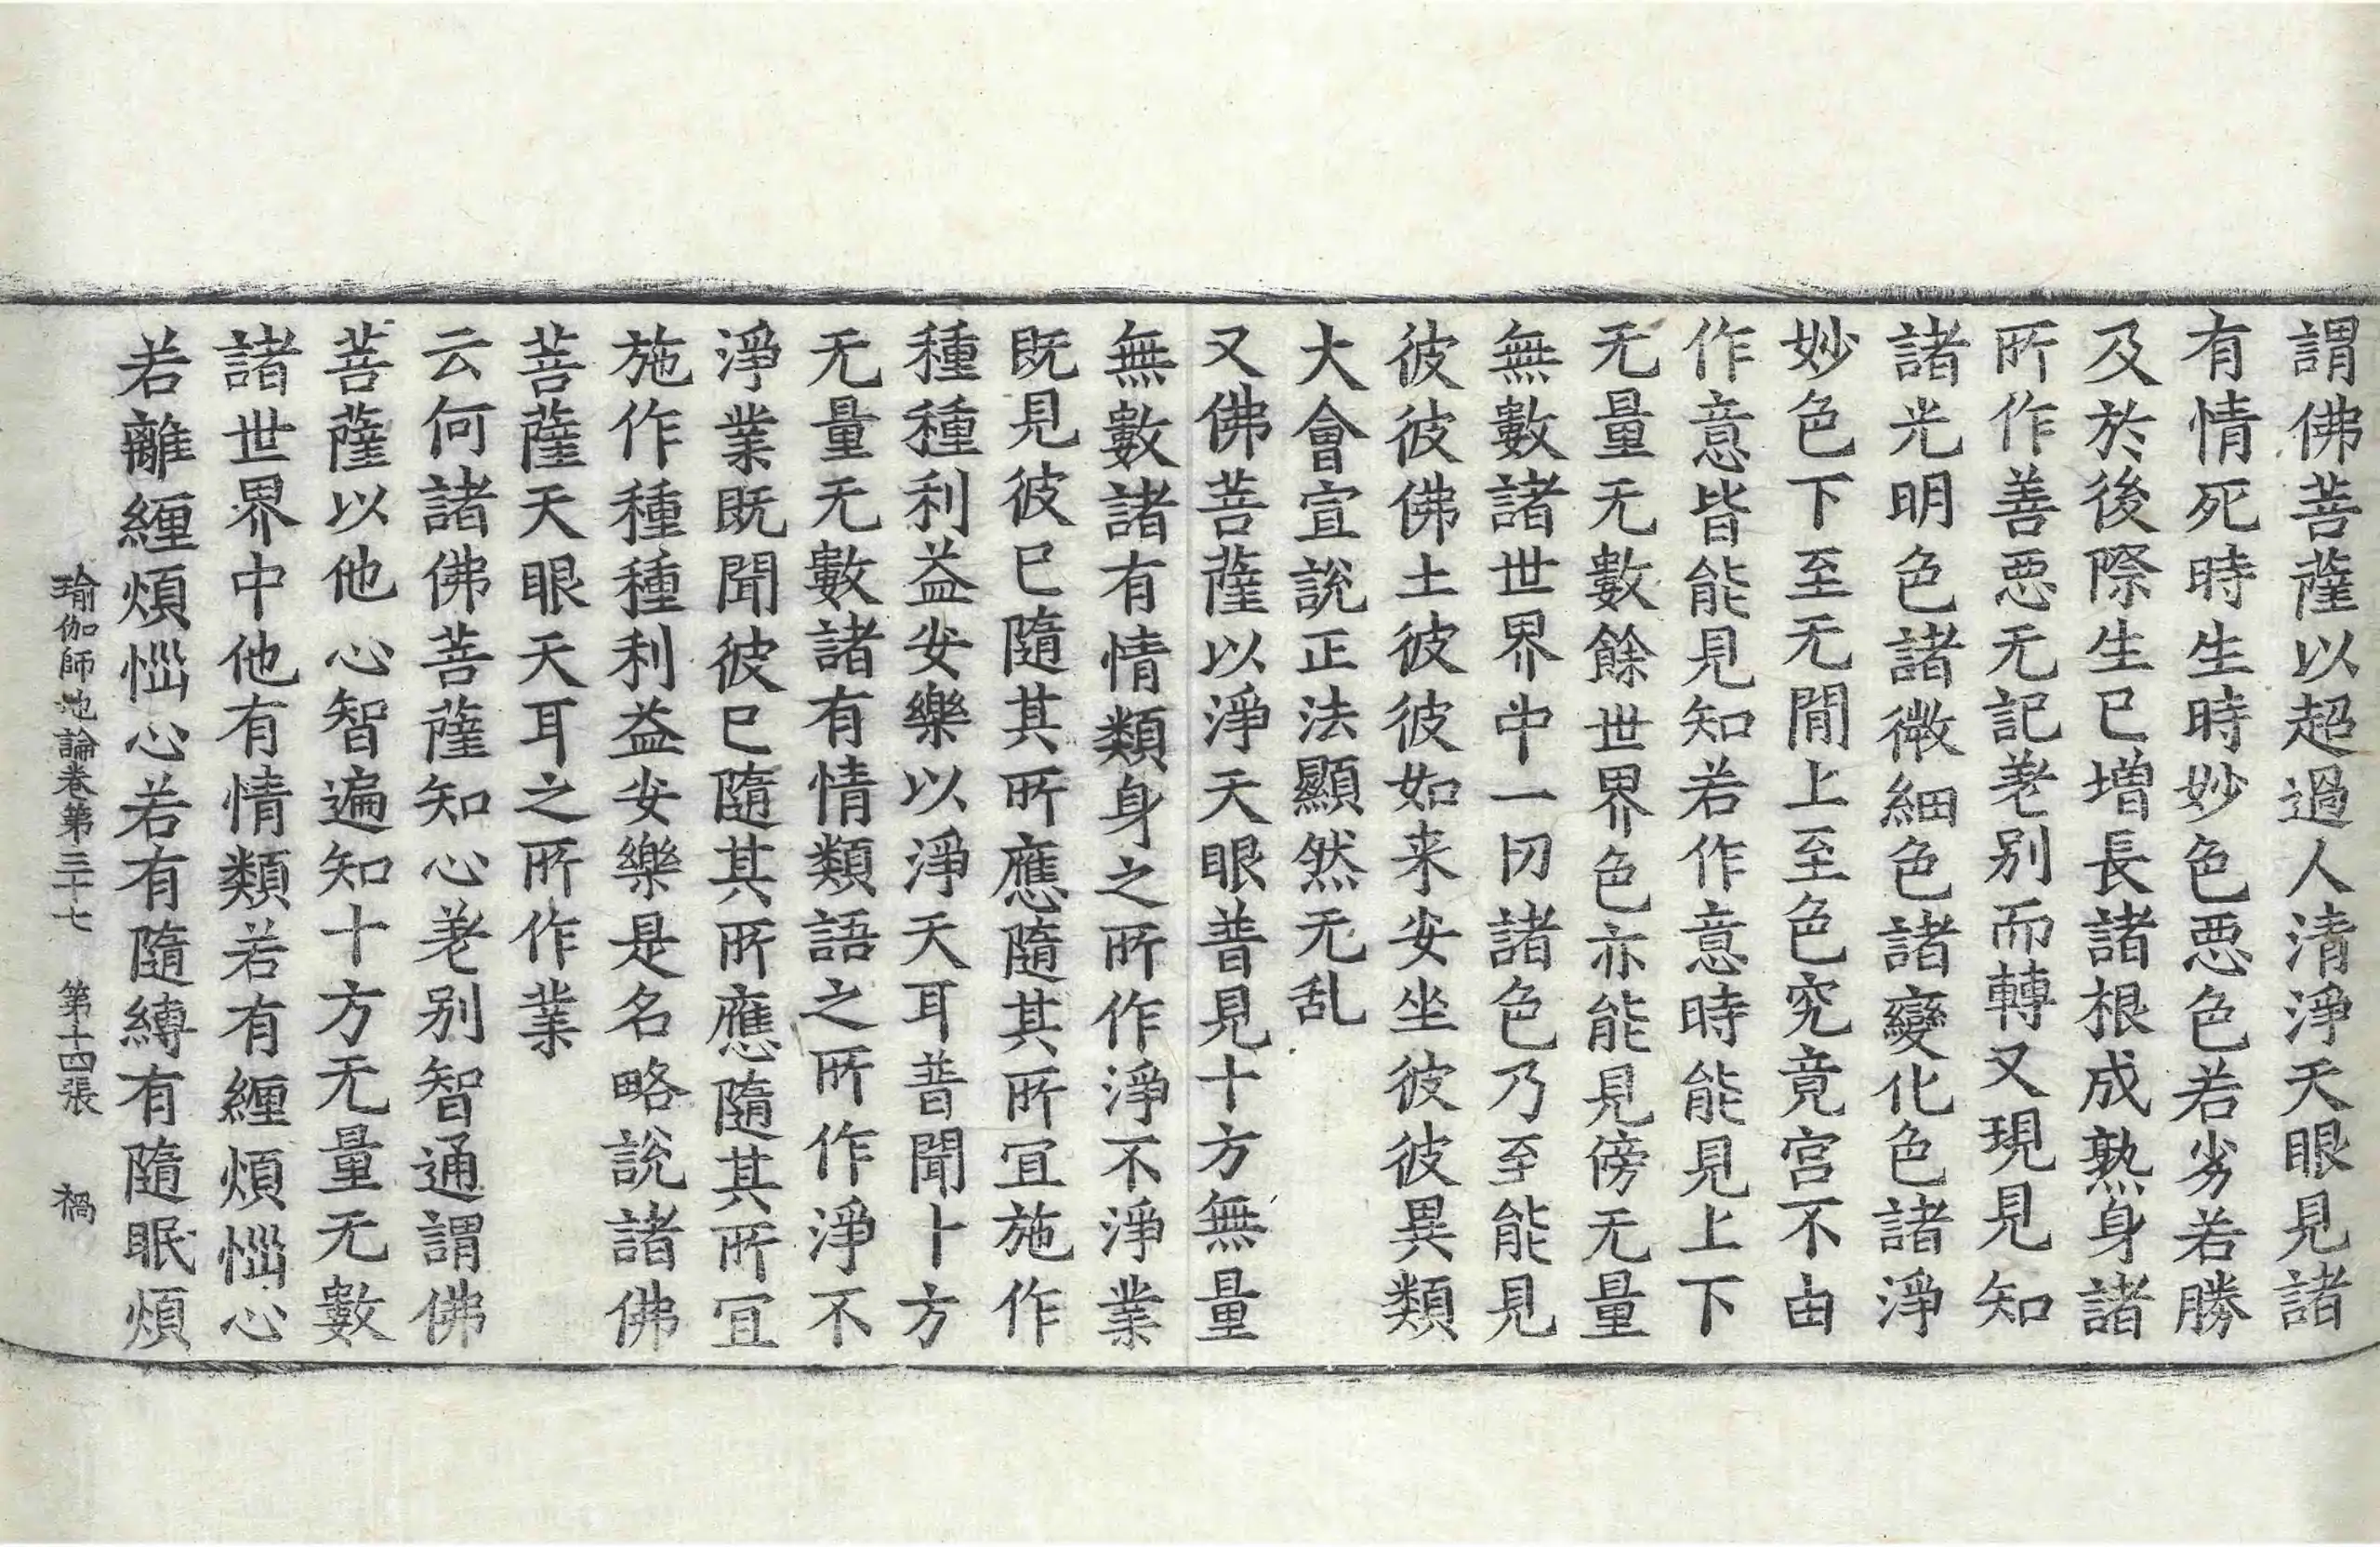 謂佛菩薩以超過人清淨天眼見諸
有情死時生時妙色悪色若劣若勝
及於後際生已增長諸根成熟身諸
所作善悪无記差別而轉又現見知
諸光明色諸微細色諸變化色諸淨
妙色下至无閒上至色究竟宫不由
作意皆能見知若作意時能見上下
无量无數餘世界色亦能見傍无量
無數諸世界中一切諸色乃至能見
彼彼佛土彼彼如来安坐彼彼異類
大會宣説正法顯然无乱
又佛菩薩以淨天眼普見十方無量
無數諸有情類身之所作淨不淨業
既見彼已隨其所應隨其所冝施作
種種利益安樂以淨天耳普聞十方
无量无數諸有情類語之所作淨不
淨業既聞彼已隨其所應隨其所冝
施作種種利益安樂是名略説諸佛
菩薩天眼天耳之所作業
云何諸佛菩薩知心差別智通謂佛
菩薩以他心智遍知十方无量无數
諸世界中他有情類若有纏煩惱心
若離纏煩惱心若有隨縛有隨眠煩
瑜伽師地論卷第三十七 第十四張 禍